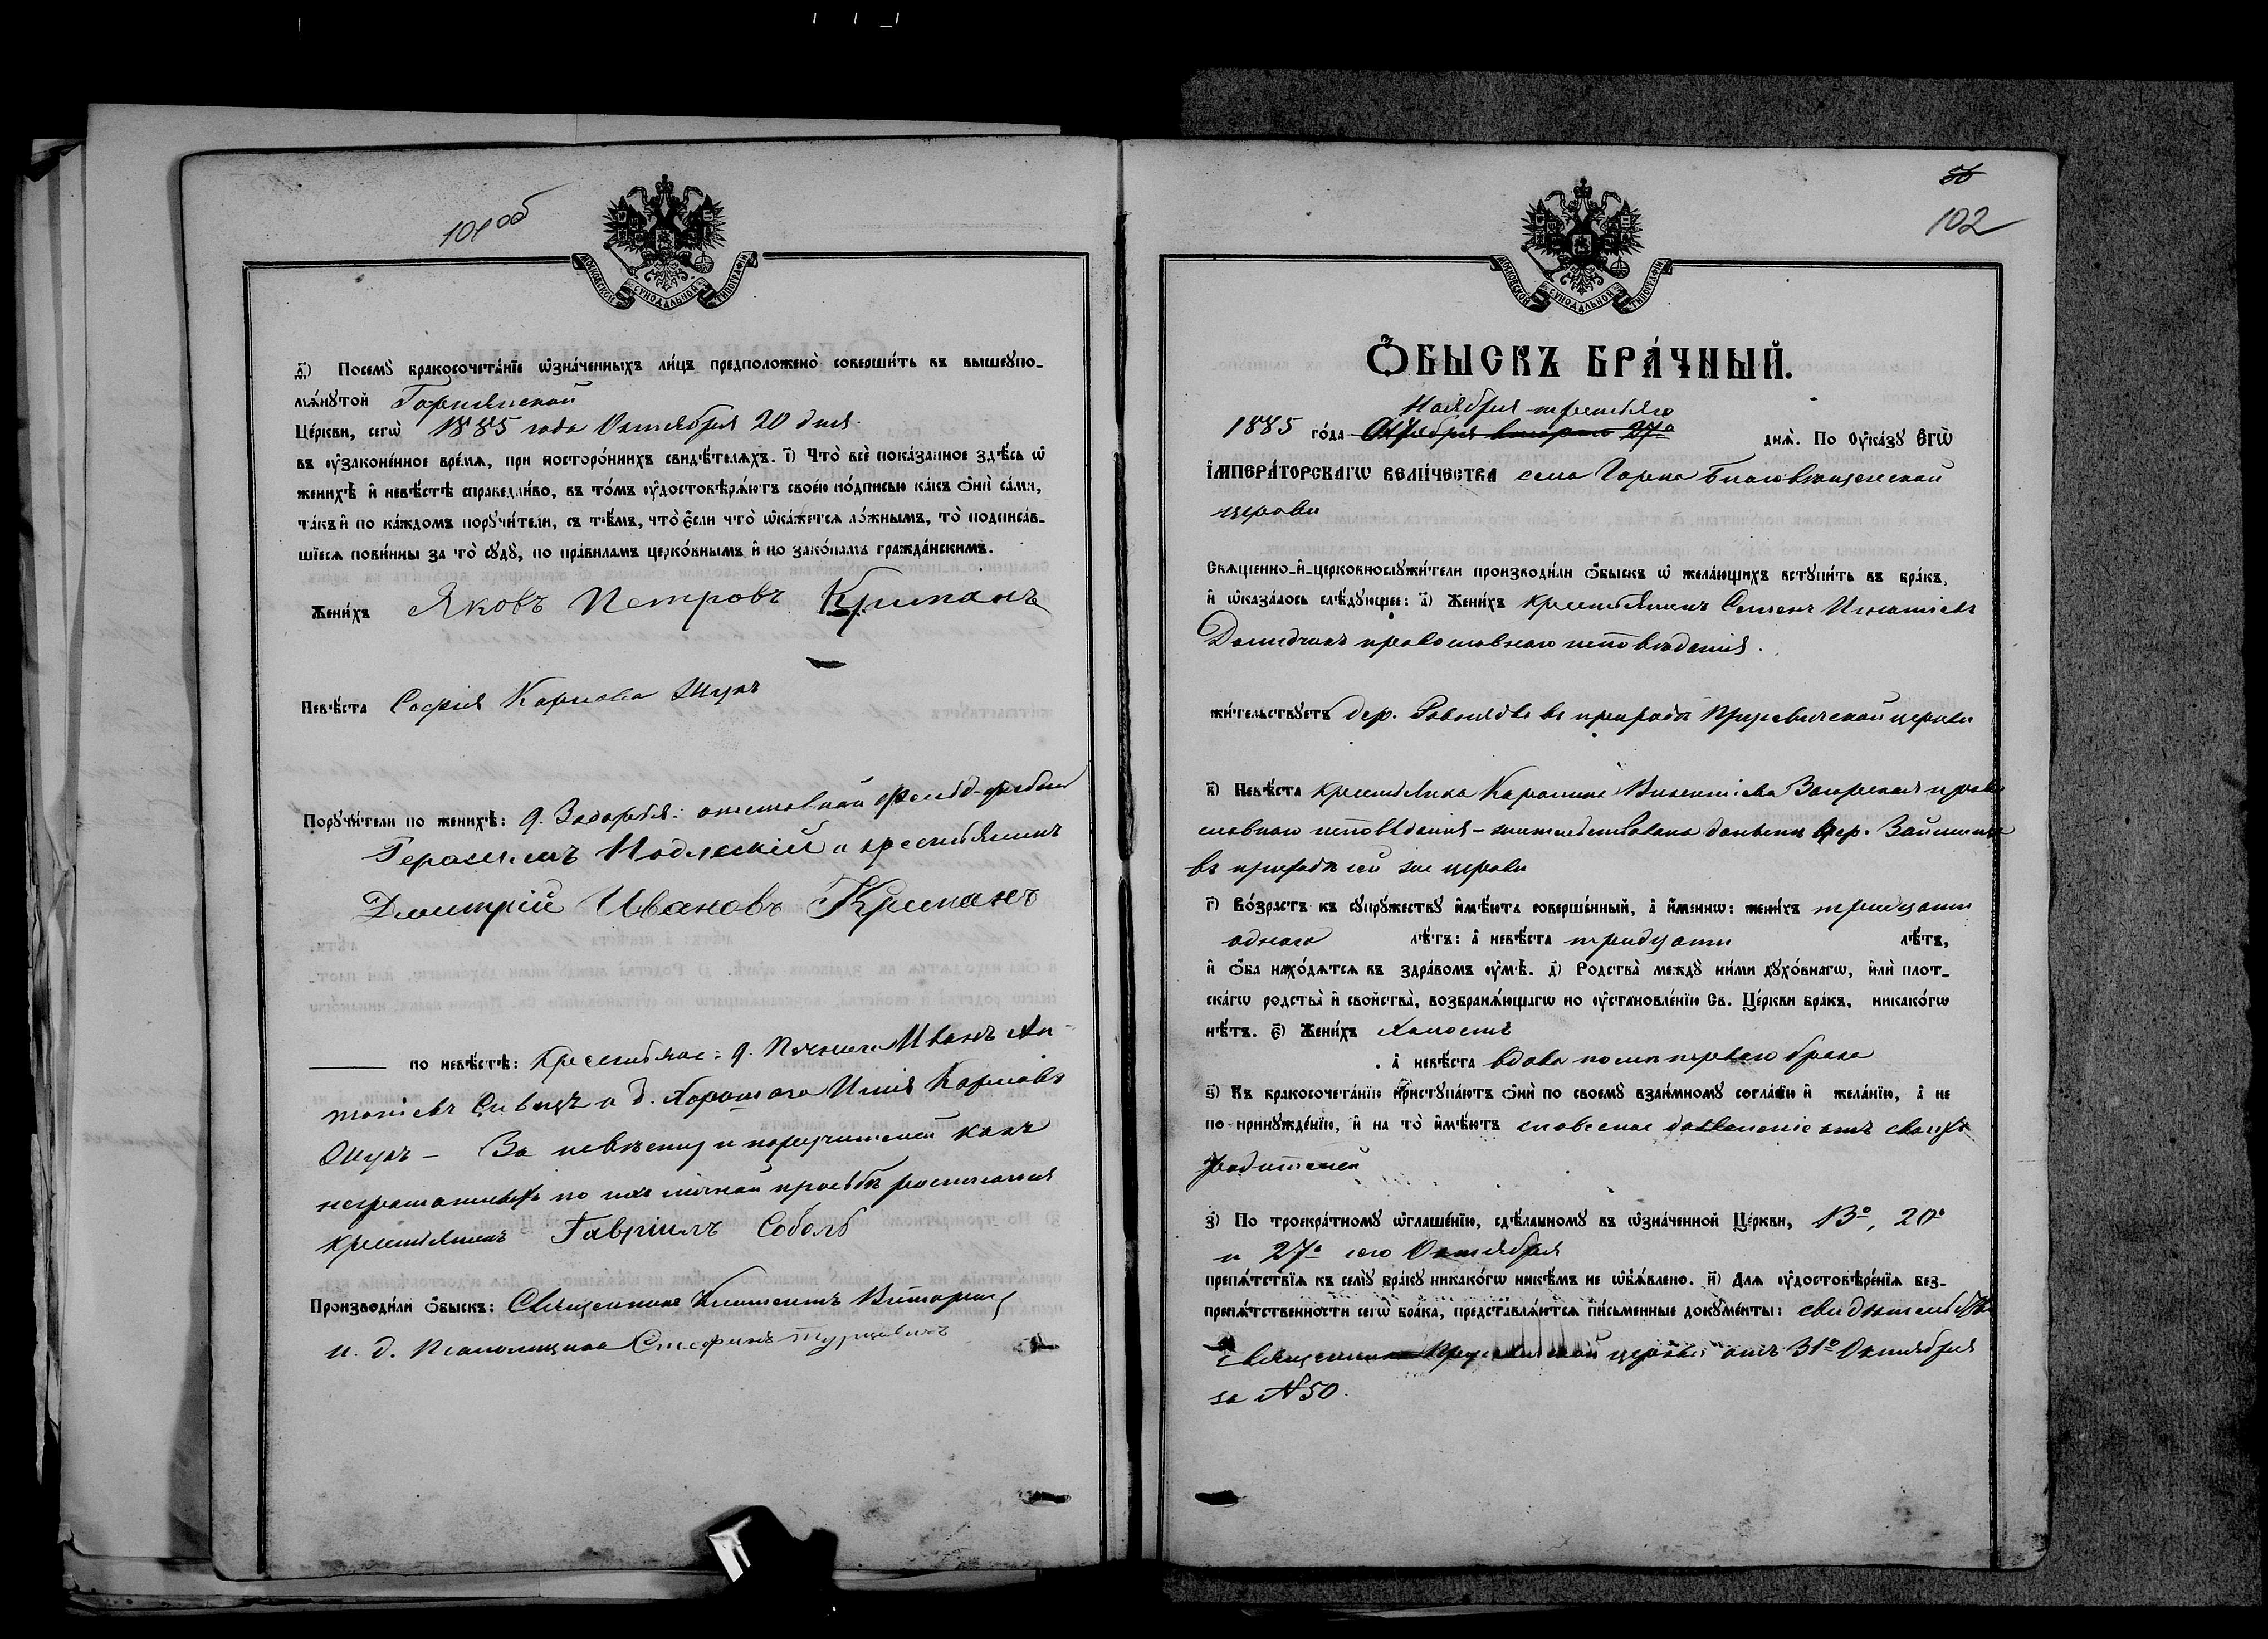 101 об
МОСКОВСКОЙ СѴНОДАЛЬНОЙ ТИПОГРАФІИ
д҃) Посемꙋ̀ бракосочета́нїе ѡ҆зна́ченныхъ ли́цъ предположено̀ соверши́ть въ вышеꙋпо-
мѧ́нꙋтой Горнянской
Це́ркви, сегѡ̀ 1885 года Октября 20 дня
въ ᲂу҆законе́нное вре́мѧ, при посторо́ннихъ свидѣ́телѧхъ. і҃) Что̀ всѐ пока́занное здѣ́сь ѡ҆
женихѣ̀ и҆ невѣ́стѣ справедли́во, въ то́мъ ᲂу҆достовѣрѧ́ютъ свое́ю по́дписью ка́къ ѻ҆нѝ са́ми,
та́къ и҆ по ка́ждомъ порꙋчи́тели, съ тѣ́мъ, что̀ є҆́сли что̀ ѡ҆ка́жетсѧ ло́жнымъ, то̀ подписа́в-
шїесѧ пови́нны за то̀ сꙋдꙋ̀, по пра́виламъ церко́внымъ и҆ по зако́намъ гражда́нскимъ.
Жени́хъ Яковъ Петровъ Крипанъ
Невѣ́ста Софія Карпова Шукъ
Порꙋчи́тели по женихѣ̀: д. Задорбья: отставной фельдфебель
Герасимъ Подлескій и крестьянинъ
Дмитрій Ивановъ Крипанъ
по невѣ́стѣ: Крестьяне: д. Иванъ Ан-
тоніевъ Сивецъ и д. Хорошого Илія Карповъ
Шукъ – За невѣсту и поручителей какъ
неграматныхъ по ихъ личной просьбѣ росписался
крестьянинъ Гавріилъ Соболь
Производи́ли ѻ҆́быскъ: Священникъ Климентъ
и. д. Псаломщика Стефанъ Турцевичъ
56
102
МОСКОВСКОЙ СѴНОДАЛЬНОЙ ТИПОГРАФІИ
Ѻ҆́БЫСКЪ БРА́ЧНЫЙ.
Ноября третьяго
1885 го́да Октября 27го днѧ̀. По ᲂу҆ка́зꙋ Є҆гѡ̀
І҆мпера́торскагѡ вели́чества села Горна Благовѣщенской
церкви
Свѧще́нно-и҆-церковнослꙋжи́тели производи́ли ѻ҆́быскъ ѡ҆ жела́ющихъ встꙋпи́ть въ бра́къ,
и҆ ѡ҆каза́лось слѣ́дꙋющее: а҃) Жени́хъ крестьянинъ Семенъ Игнатіевъ
православнаго исповѣданія.
жи́тельствꙋетъ дер. въ приходѣ церкви
в҃) Невѣ́ста крестьянка Каролина Викентіева Загорская право
славнаго исповѣданія – жительствовала донынѣ дер.
въ приходѣ сей же церкви
г҃) Во́зрастъ къ сꙋпрꙋ́жествꙋ и҆мѣ́ютъ соверше́нный, а҆ и҆́меннѡ: жени́хъ тридцати
одного лѣ́тъ: а҆ невѣ́ста тридцати лѣ́тъ,
и҆ ѻ҆́ба нахо́дѧтсѧ въ здра́вомъ ᲂу҆мѣ̀. д҃) Родства̀ междꙋ̀ ни́ми дꙋхо́внагѡ, и҆лѝ плот-
ска́гѡ родства̀ и҆ свойства̀, возбранѧ́ющагѡ по ᲂу҆становле́нїю Св. Це́ркви бра́къ, никако́гѡ
нѣ́тъ. є҃) Жени́хъ холостъ
а҆ невѣ́ста вдова послѣ перваго брака
ѕ҃) Къ бракосочета́нїю пристꙋпа́ютъ ѻ҆нѝ по своемꙋ̀ взаи́мномꙋ согла́сїю и҆ жела́нїю, а҆ не
по принꙋжде́нїю, и҆ на то̀ и҆мѣ́ютъ словесное дозволеніе отъ своихъ
родителей
з҃) По троекра́тномꙋ ѡ҆глаше́нїю, сдѣ́ланномꙋ въ ѡ҆зна́ченной Це́ркви, 13го, 20го
и 27го сего Октября
препѧ́тствїѧ къ семꙋ̀ бра́кꙋ никако́гѡ никѣ́мъ не ѡ҆б̾ѧ́влено. и҃) Длѧ ᲂу҆достовѣре́нїѧ без-
препѧ́тственности сегѡ̀ бра́ка, представлѧ́ютсѧ пи́сьменные докꙋме́нты: свидѣтельство
священника церкви отъ 31го Октября
за №50.